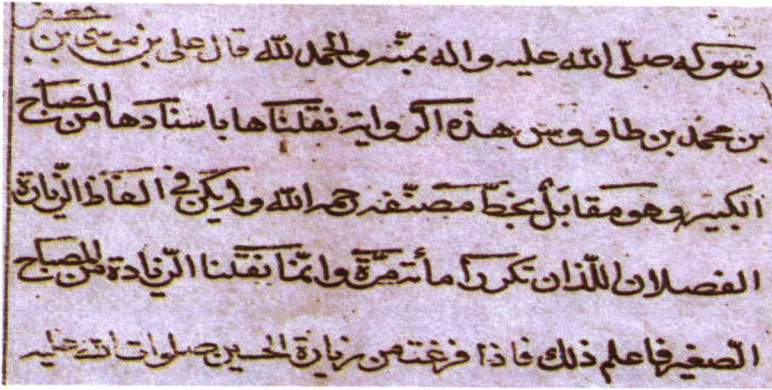 رسوله صلّى الله عليه واله بمنّه والحمد لله قال على بن موسى بن
بن محمد بن طاووس هذه الرواية نقلناها باسنادها من المصباح
الكبير وهو مقابل بخطّ مصنّفه رحمه الله ولم يكن في الفاظ الزّيارة
الفصلان اللّذان تكرر مأئة مرّة وانّما نقلنا الزّيادة من المصباح
الصّغير فاعلم ذلك فاذا فرغت من زيارة الحسين صلوات الله عليه